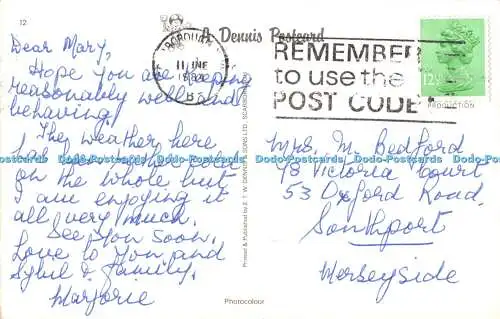 12
A Dennis Postcard
Dear Mary,
Hope you are keeping
reasonably well and
behaving!
The weather here
has been rather mixed
on the whole, but
I am enjoying it
all very much.
See you soon,
Love to You and
Sybil & Family,
Marjorie
11 JNE
REMEMBER
to use the
POST CODE
12½P
PRODUCTION
Mrs. M. Bedford
98 Victoria Court
53 Oxford Road,
Southport
Merseyside
Printed & Published by E. T. W. DENNIS & SONS LTD. SCARBOROUGH
Photocolour
Dodo-Postcards Dodo-Postcards Dodo-Postcards Dodo-Postcards Dodo-Postcards